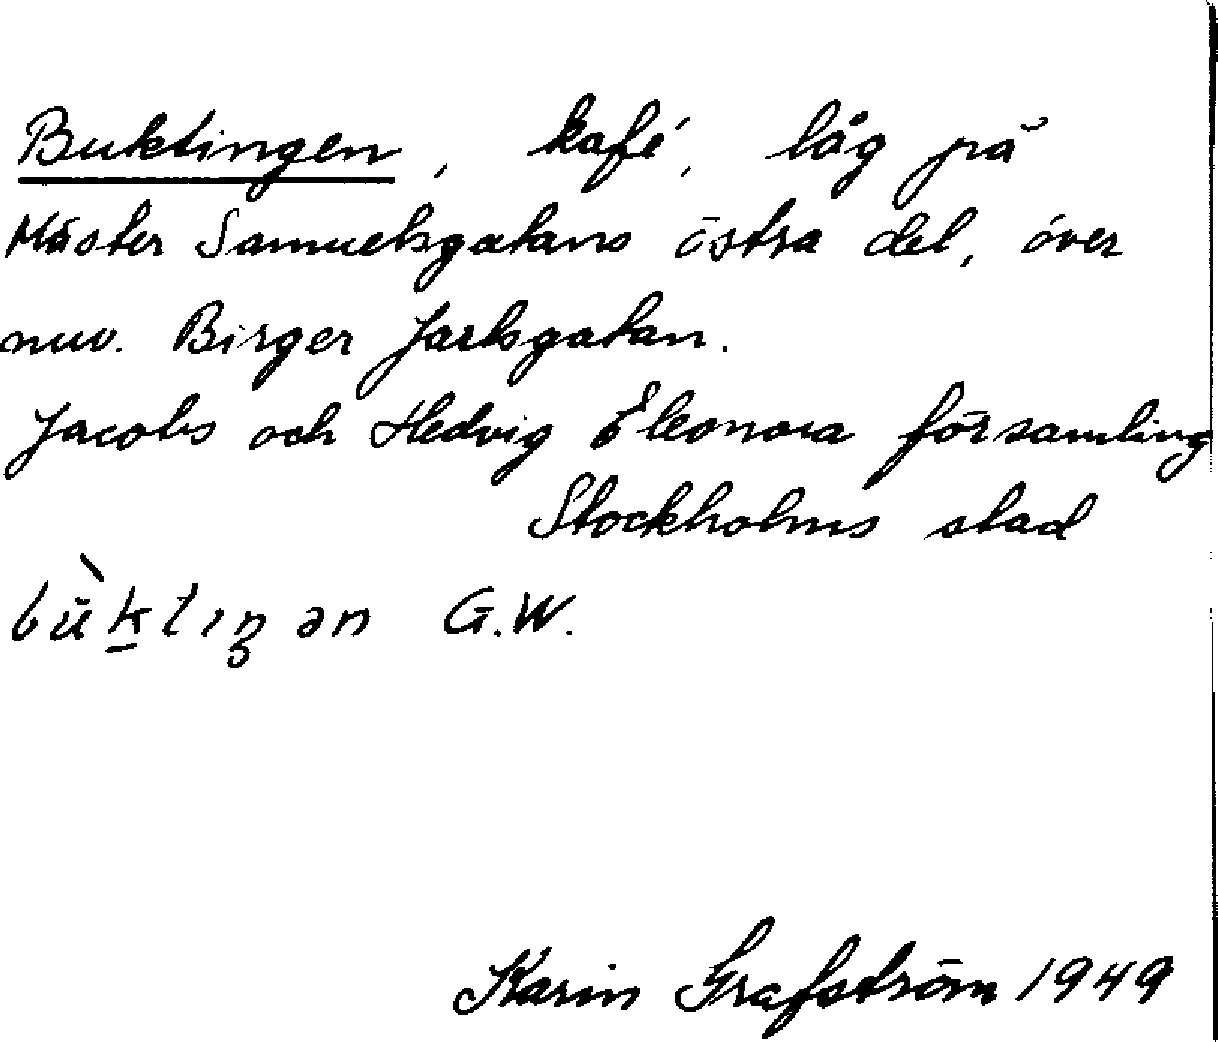 Buktingen, kafé, låg på
Mäster Samuelsgatans östra del, över
nuv. Birger Jarlsgatan.
Jacobs och Hedvig Eleonora församling
Stockholms stad
bùktıŋən G.W.
Karin Grafström 1949